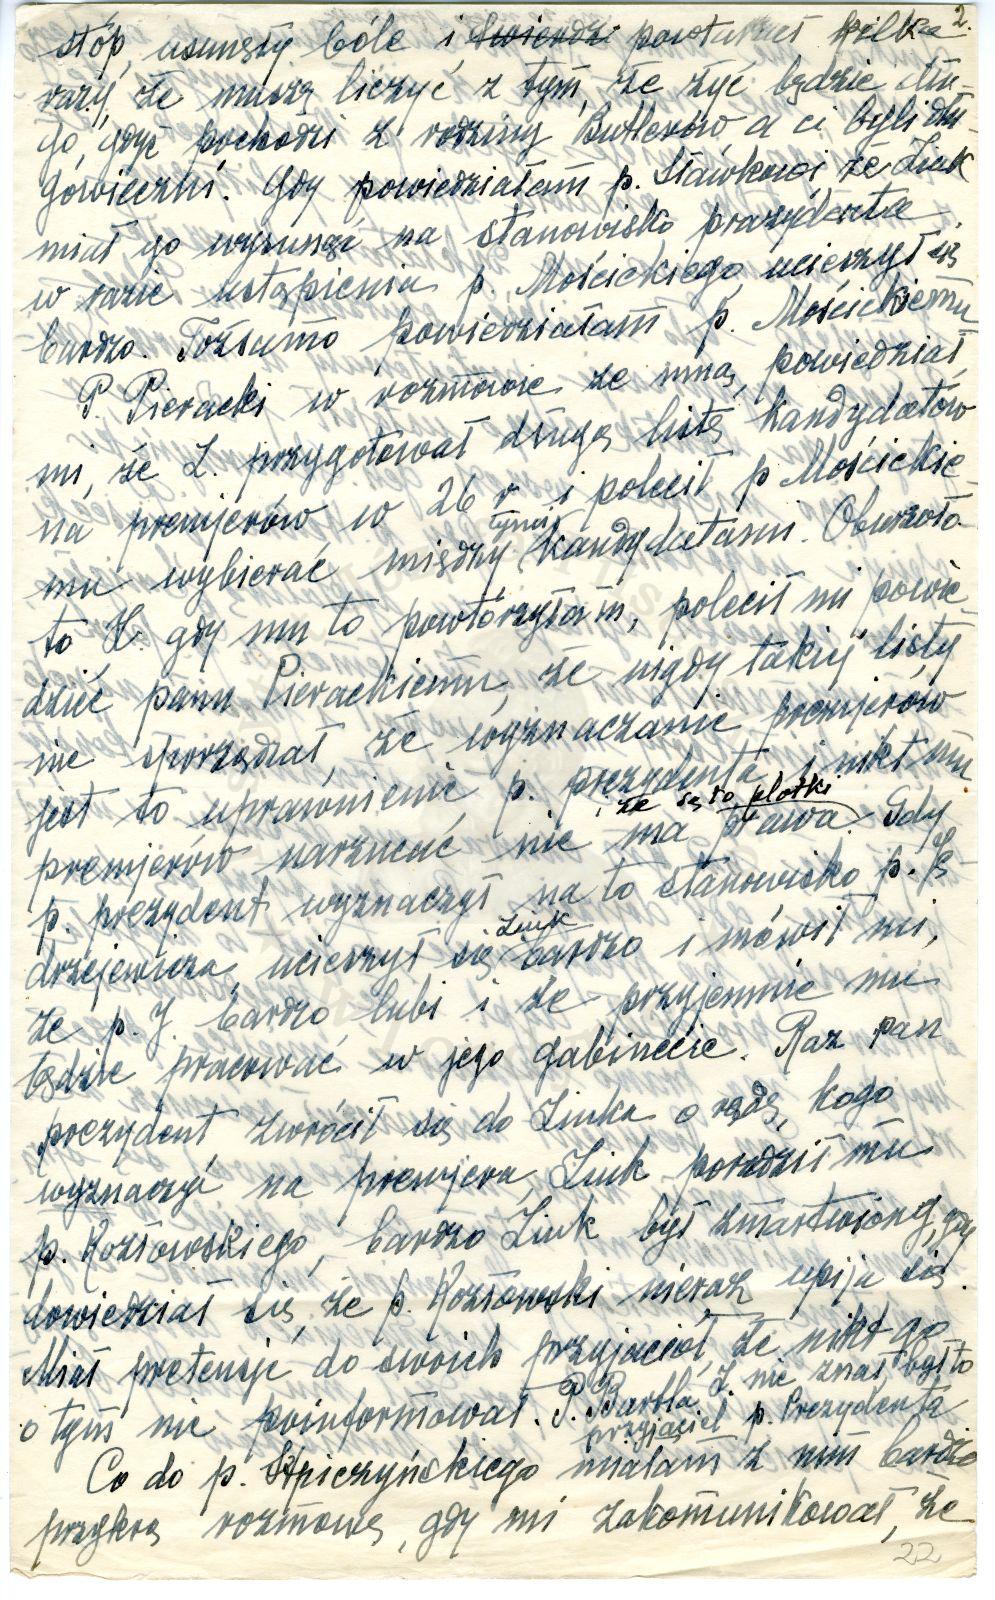 2.
stóp, usunęły bóle i twierdzi powtarzał kilka
razy, że muszę liczyć z tym, że żyć będzie dłu-
go, gdyż pochodzi z rodziny Butlerów a ci byli dłu-
gowieczni. Gdy powiedziałam p. Sławkowi że Ziuk
miał go wysunąć na stanowisko prezydenta
w razie ustąpienia p. Mościckiego, ucieszył się
bardzo. Tożsamo powiedziałam p. Mościckiemu
P. Pieracki w rozmowie ze mną, powiedział
mi, że Z. przygotował długą listę kandydatów
na premjerów w 26 r i polecił p Mościckie-
mu wybierać między tymi kandydatami. Oburzyło
to Z. gdy mu to powtórzyłam, polecił mi powie-
dzieć panu Pierackiemu, że nigdy takiej listy
nie sporządzał, że wyznaczanie premjerów
jest to uprawnienie p. prezydenta i nikt mu
premjerów narzucać nie ma prawa. że są to plotki Gdy
p. prezydent wyznaczył na to stanowisko p. Ję-
drzejewicza, ucieszył się Ziuk bardzo i mówił mi,
że p. J. bardzo lubi i że przyjemnie mu
będzie pracować w jego gabinecie. Raz pan
prezydent zwrócił się do Ziuka o radę, kogo
wyznaczyć na premjera, Ziuk poradził mu
p. Kozłowskiego, bardzo Ziuk był zmartwiony, gdy
dowiedział się, że p. Kozłowski nieraz upija się.
Miał pretensje do swoich przyjaciół, że nikt go
o tym nie poinformował. P. Bartla Z. nie znał, był to
przyjaciel p. Prezydenta
Co do p. Stpiczyńskiego miałam z nim bardzo
przykrą rozmowę, gdy mi zakomunikował, że
22